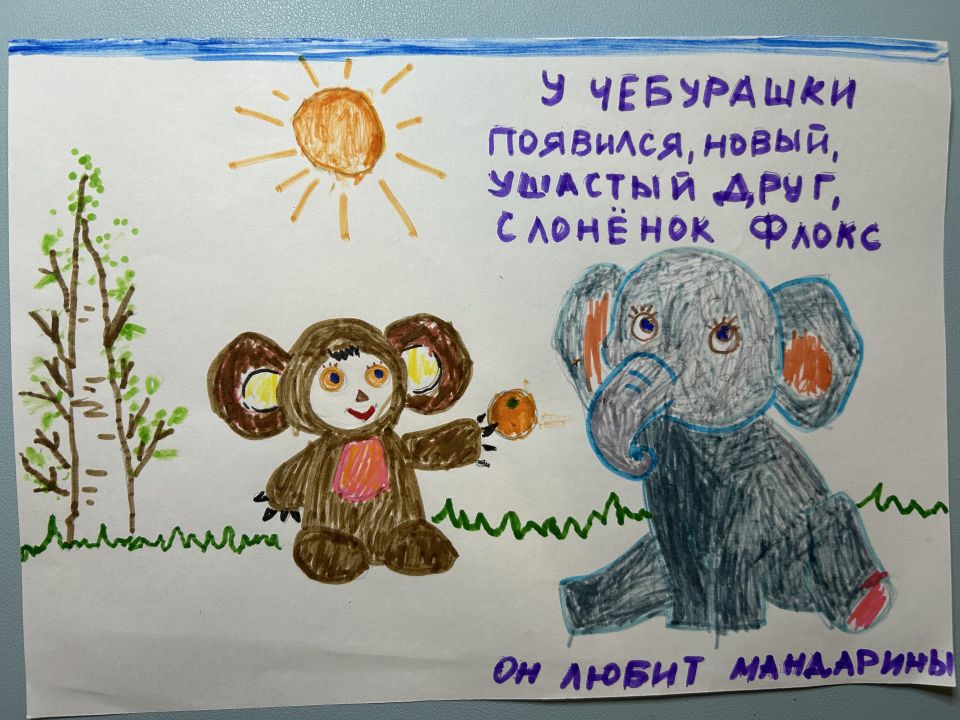 У ЧЕБУРАШКИ
ПОЯВИЛСЯ, НОВЫЙ,
УШАСТЫЙ ДРУГ,
СЛОНЁНОК ФЛОКС
ОН ЛЮБИТ МАНДАРИНЫ